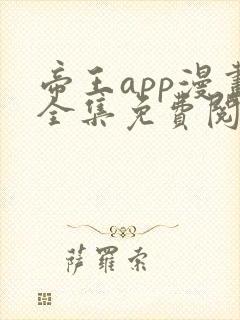 帝王app漫畫
全集免費閱
萨羅索